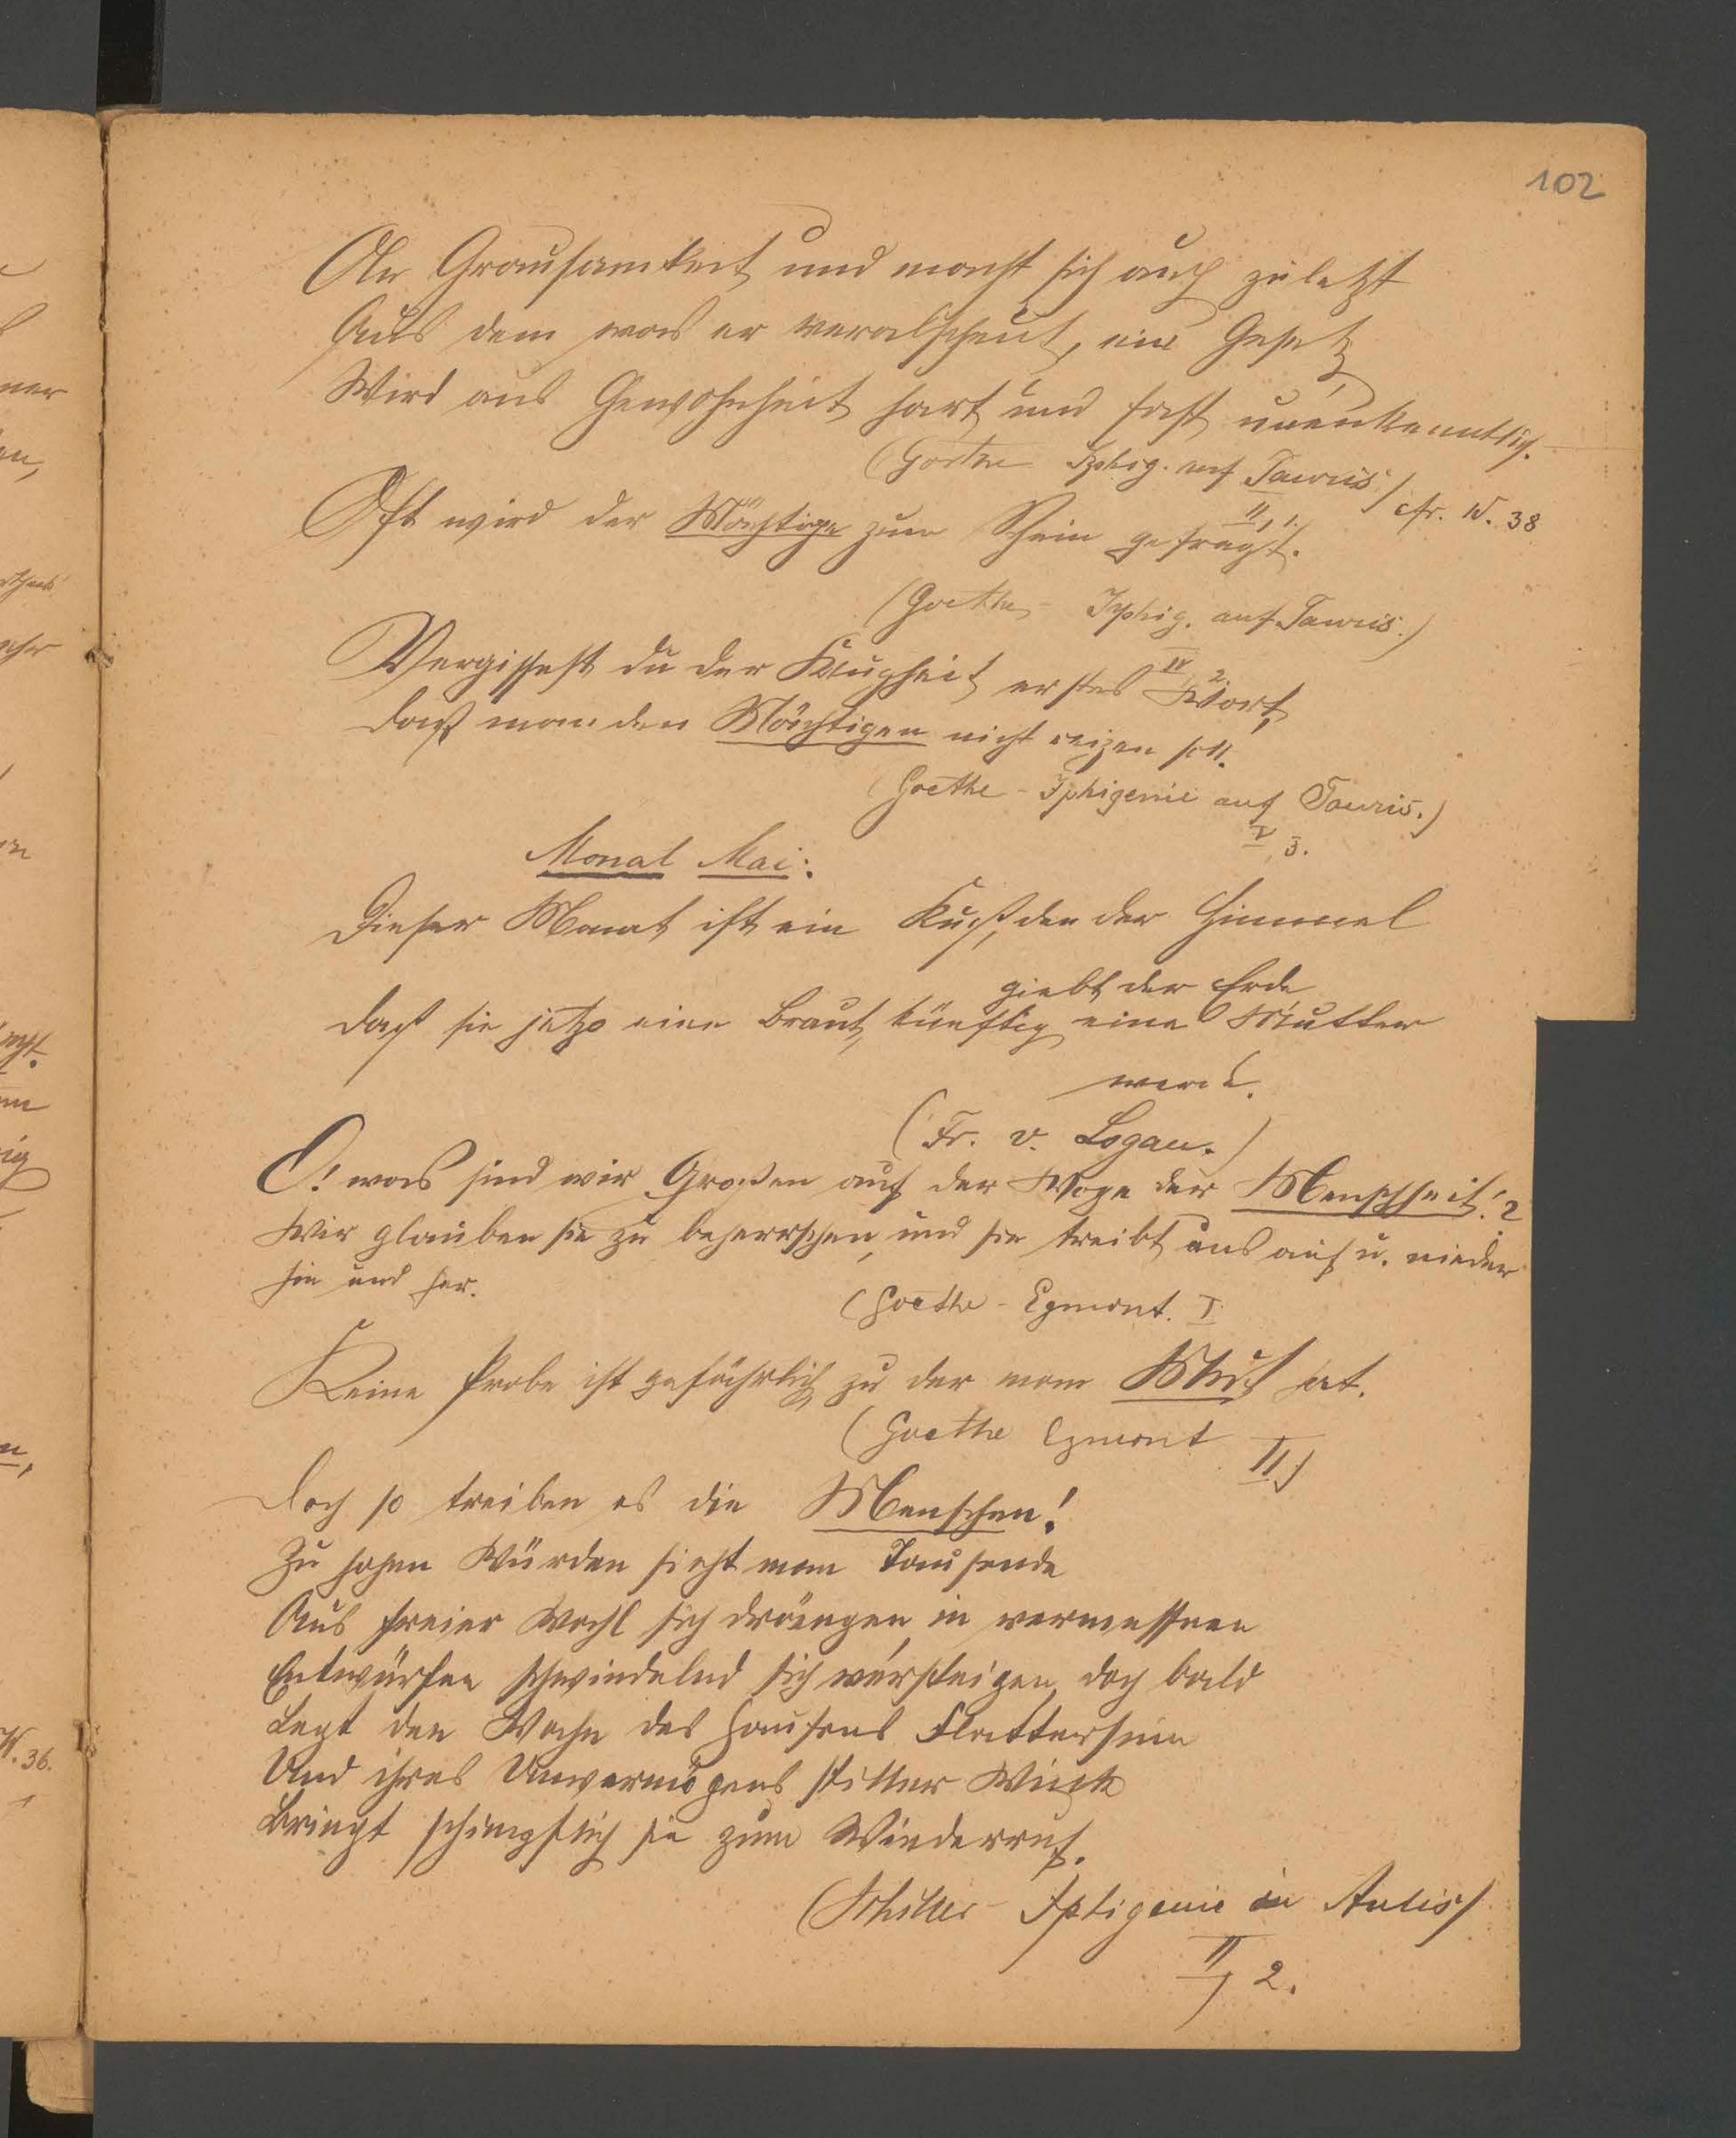 102
An Grausamkeit und macht sich auch zuletzt
Aus dem was er verabscheut, ein Gesetz
Wird aus Gewohnheit hart und fast unenkenntlich.
(Goethe Iphig. auf Tauris)
II, 1.
cfr. N. 38
Oft wird der Mächtige zum Schein gefragt.
(Goethe - Iphig. auf Tauris.)
IV 2
Vergissest du der Klugheit erstes Wort,
Daß man den Mächtigen nicht reizen soll.
(Goethe - Iphigenie auf Tauris.)
V, 3.
Monat Mai:
Dieser Monat ist ein Kuß, den der Himmel
giebt der Erde
Daß sie jetzo eine Braut, künftig eine Mutter
werde.
(Fr. v. Logau.)
O! was sind wir Großen auf der Woge der Menschheit!?
Wir glauben sie zu beherrschen, und sie treibt uns auf u. nieder
hin und her.
(Goethe - Egmont. I
Keine Probe ist gefährlich zu der man Mut hat.
(Goethe Egmont II)
Doch so treiben es die Menschen!
Zu hohen Würden sieht man Tausende
Aus freier Wahl sich drängen, in vermessnen
Entwürfen schwindelnd sich versteigen, doch bald
Legt den Wahn des Haufens Flattersinn
Und ihres Unvermögens stiller Wink
Bringt schimpflich sie zum Wiederruf.
(Schiller - Iphigenie in Aulis)
II, 2.